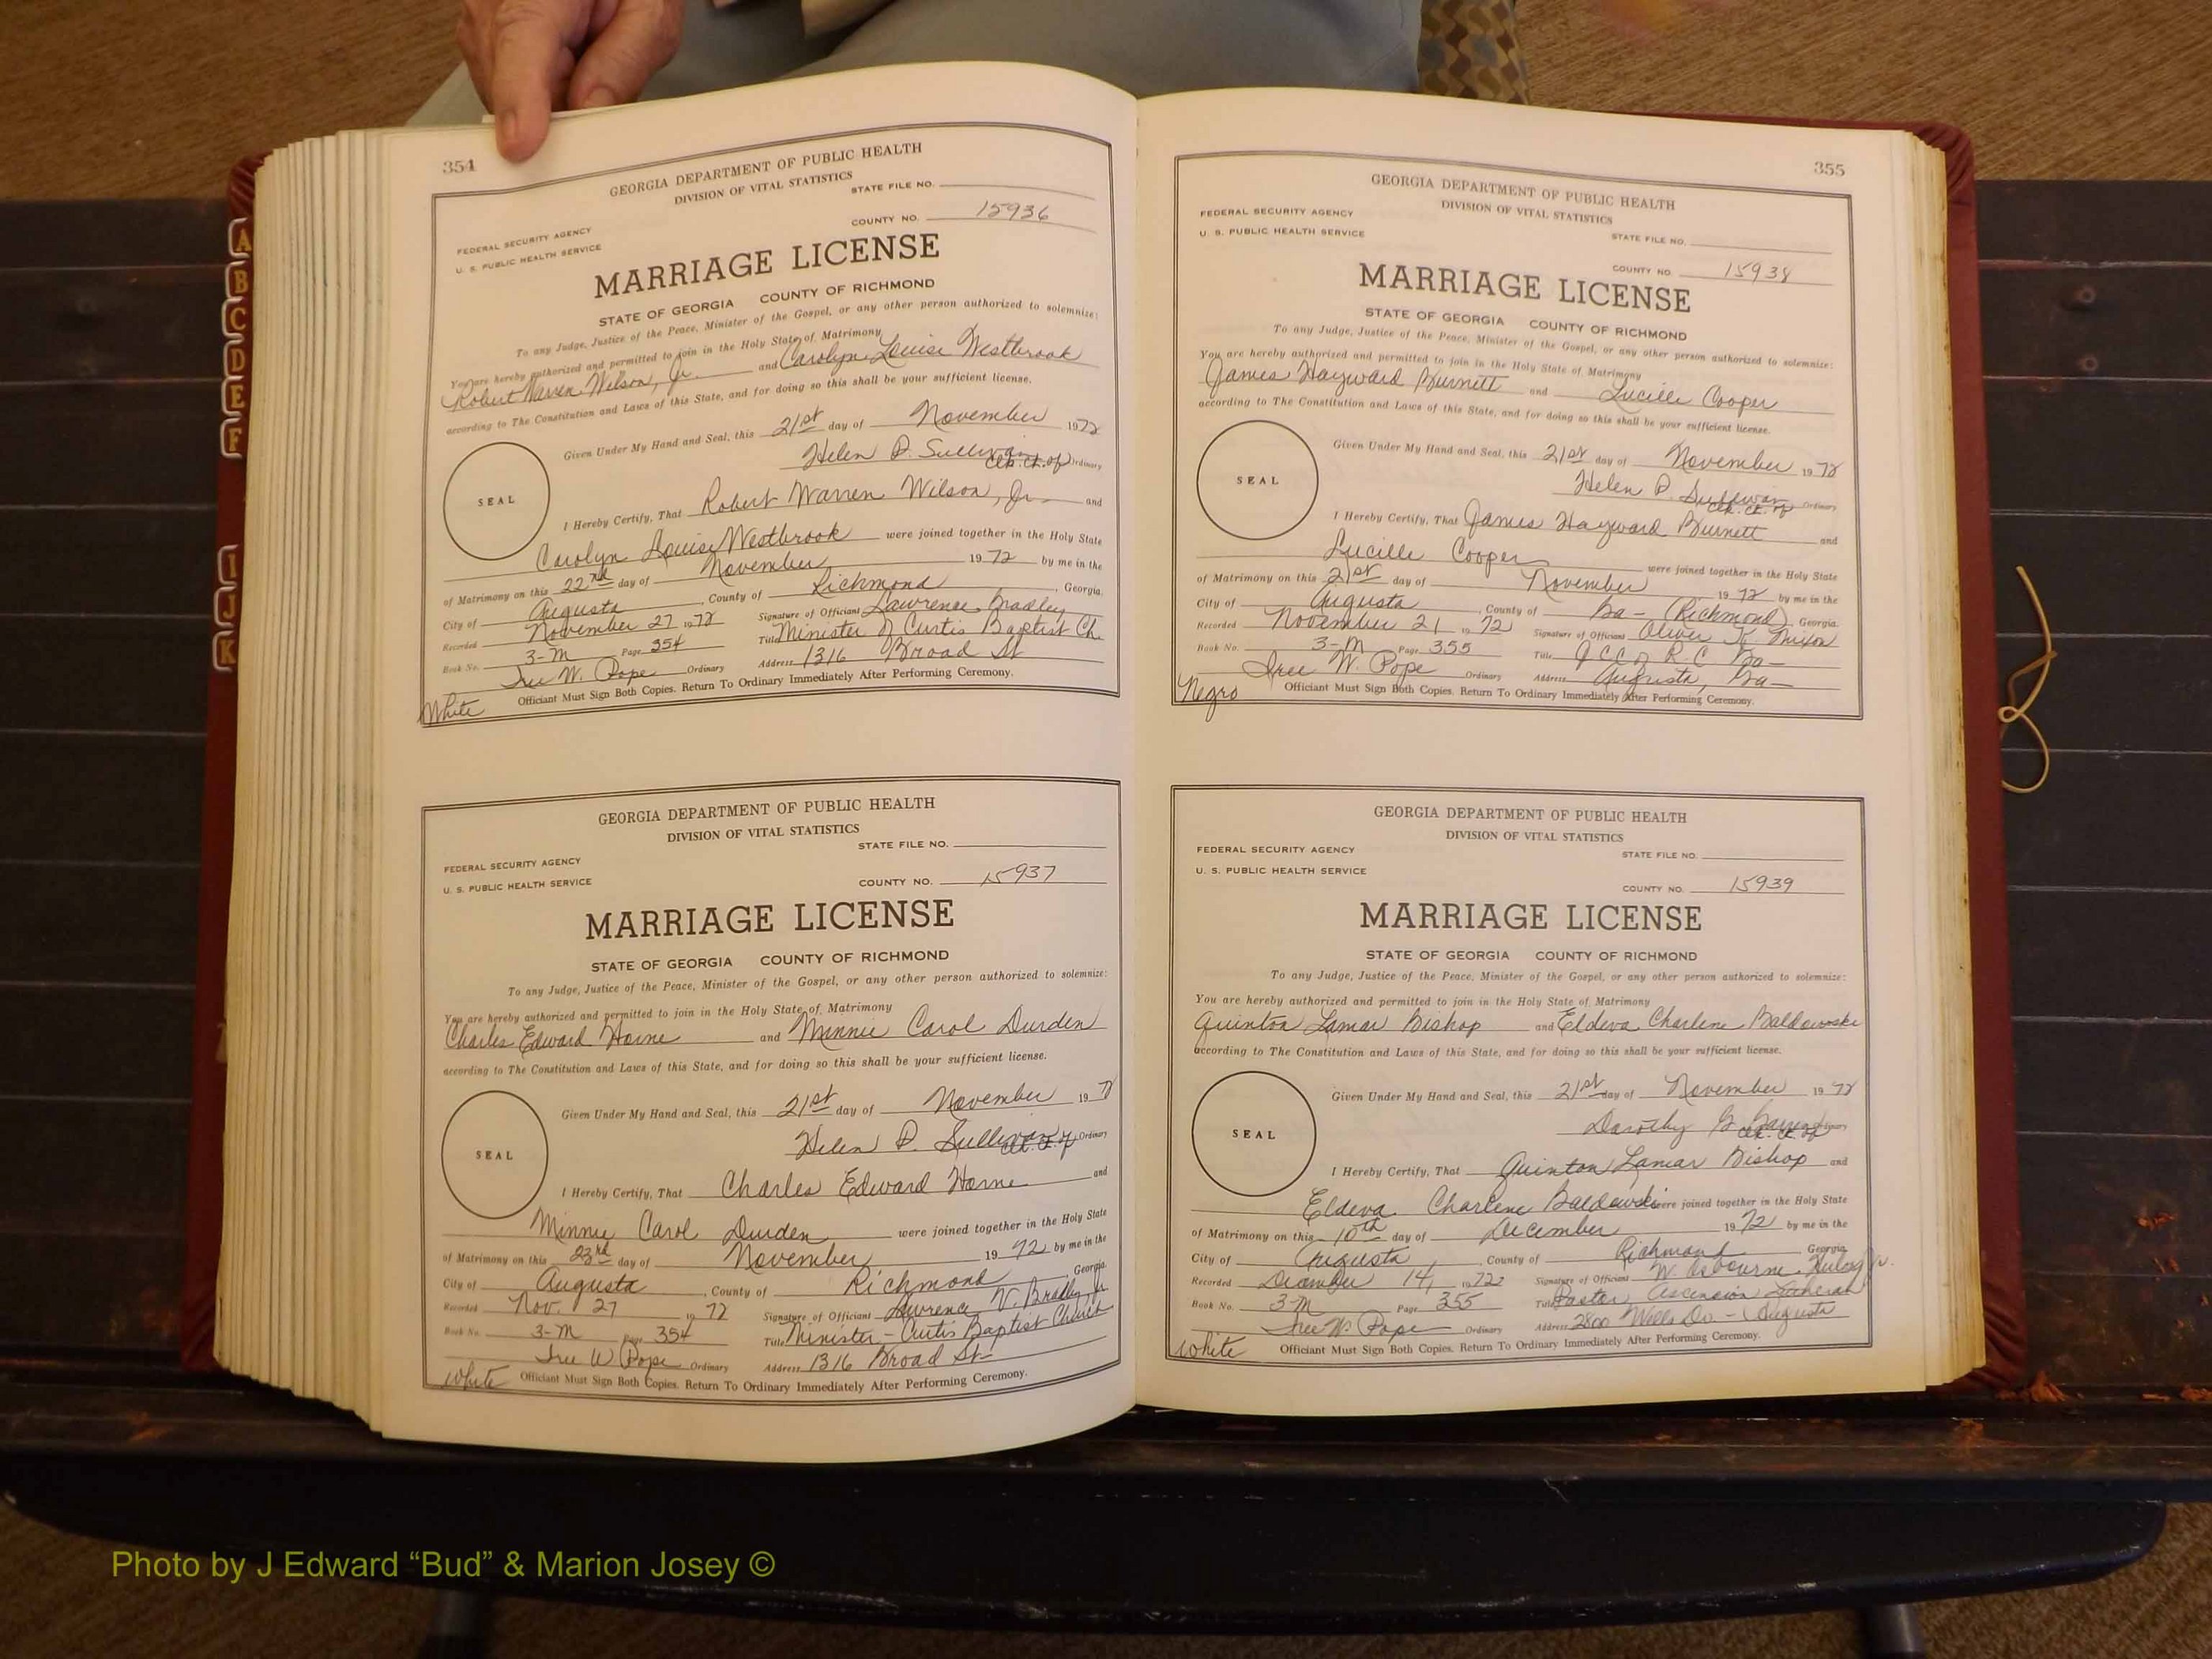 A
B
C
D
E
F
I
J
K
354
GEORGIA DEPARTMENT OF PUBLIC HEALTH
DIVISION OF VITAL STATISTICS
STATE FILE NO.
FEDERAL SECURITY AGENCY
U. S. PUBLIC HEALTH SERVICE
COUNTY NO. 15936
MARRIAGE LICENSE
STATE OF GEORGIA COUNTY OF RICHMOND
To any Judge, Justice of the Peace, Minister of the Gospel, or any other person authorized to solemnize:
You are hereby authorized and permitted to join in the Holy State of Matrimony
Robert Warren Wilson, Jr. and Carolyn Louise Westbrook
according to The Constitution and Laws of this State, and for doing so this shall be your sufficient license.
Given Under My Hand and Seal, this 21st day of November 1972
Helen P. Sullivan Clk. Ct. of Ordinary
SEAL
I Hereby Certify, That Robert Warren Wilson, Jr. and
Carolyn Louise Westbrook were joined together in the Holy State
of Matrimony on this 22nd day of November 1972 by me in the
City of Augusta, County of Richmond, Georgia.
Recorded November 27 1972 Signature of Officiant Lawrence Bradley
Book No. 3-M Page 354 Title Minister of Curtis Baptist Ch.
W. Pope Ordinary Address 1316 Broad St
White Officiant Must Sign Both Copies. Return To Ordinary Immediately After Performing Ceremony.
GEORGIA DEPARTMENT OF PUBLIC HEALTH
DIVISION OF VITAL STATISTICS
STATE FILE NO.
FEDERAL SECURITY AGENCY
U. S. PUBLIC HEALTH SERVICE
COUNTY NO. 15937
MARRIAGE LICENSE
STATE OF GEORGIA COUNTY OF RICHMOND
To any Judge, Justice of the Peace, Minister of the Gospel, or any other person authorized to solemnize:
You are hereby authorized and permitted to join in the Holy State of Matrimony
Charles Edward Horne and Minnie Carol Durden
according to The Constitution and Laws of this State, and for doing so this shall be your sufficient license.
Given Under My Hand and Seal, this 21st day of November 197
Helen P. Sullivan Clk. Ct. of Ordinary
SEAL
I Hereby Certify, That Charles Edward Horne and
Minnie Carol Durden were joined together in the Holy State
of Matrimony on this 23rd day of November 1972 by me in the
City of Augusta, County of Richmond, Georgia.
Recorded Nov. 27 1972 Signature of Officiant Lawrence V. Bradley, Jr
Book No. 3-M Page 354 Title Minister - Curtis Baptist Church
W Pope Ordinary Address 1316 Broad St-
White Officiant Must Sign Both Copies. Return To Ordinary Immediately After Performing Ceremony.
355
GEORGIA DEPARTMENT OF PUBLIC HEALTH
DIVISION OF VITAL STATISTICS
FEDERAL SECURITY AGENCY
U. S. PUBLIC HEALTH SERVICE
STATE FILE NO.
COUNTY NO. 15938
MARRIAGE LICENSE
STATE OF GEORGIA COUNTY OF RICHMOND
To any Judge, Justice of the Peace, Minister of the Gospel, or any other person authorized to solemnize:
You are hereby authorized and permitted to join in the Holy State of Matrimony
James Hayward Burnett and Lucille Cooper
according to The Constitution and Laws of this State, and for doing so this shall be your sufficient license.
Given Under My Hand and Seal, this 21st day of November 1972
Helen P. Sullivan Clk. Ct. of Ordinary
SEAL
I Hereby Certify, That James Hayward Burnett and
Lucille Cooper were joined together in the Holy State
of Matrimony on this 21st day of November 1972 by me in the
City of Augusta, County of Ga - (Richmond), Georgia.
Recorded November 21 1972 Signature of Officiant Oliver K. Mixon
Book No. 3-M Page 355 Title R.C. Ga -
W. Pope Ordinary Address Augusta, Ga -
Negro Officiant Must Sign Both Copies. Return To Ordinary Immediately After Performing Ceremony.
GEORGIA DEPARTMENT OF PUBLIC HEALTH
DIVISION OF VITAL STATISTICS
FEDERAL SECURITY AGENCY
STATE FILE NO.
U. S. PUBLIC HEALTH SERVICE
COUNTY NO. 15939
MARRIAGE LICENSE
STATE OF GEORGIA COUNTY OF RICHMOND
To any Judge, Justice of the Peace, Minister of the Gospel, or any other person authorized to solemnize:
You are hereby authorized and permitted to join in the Holy State of Matrimony
Quinton Lamar Bishop and Eldeva Charlene Baldowski
according to The Constitution and Laws of this State, and for doing so this shall be your sufficient license.
Given Under My Hand and Seal, this 21st day of November 1972
Dorothy G. Clk. Ct. of Ordinary
SEAL
I Hereby Certify, That Quinton Lamar Bishop and
Eldeva Charlene Baldowski were joined together in the Holy State
of Matrimony on this 10th day of December 1972 by me in the
City of Augusta, County of Richmond, Georgia.
Recorded December 14, 1972 Signature of Officiant W. Osbourne Jr.
Book No. 3-M Page 355 Title Pastor Ascension Lutheran
W. Pope Ordinary Address 2800 Wells Dr. - Augusta
White Officiant Must Sign Both Copies. Return To Ordinary Immediately After Performing Ceremony.
Photo by J Edward “Bud” & Marion Josey ©